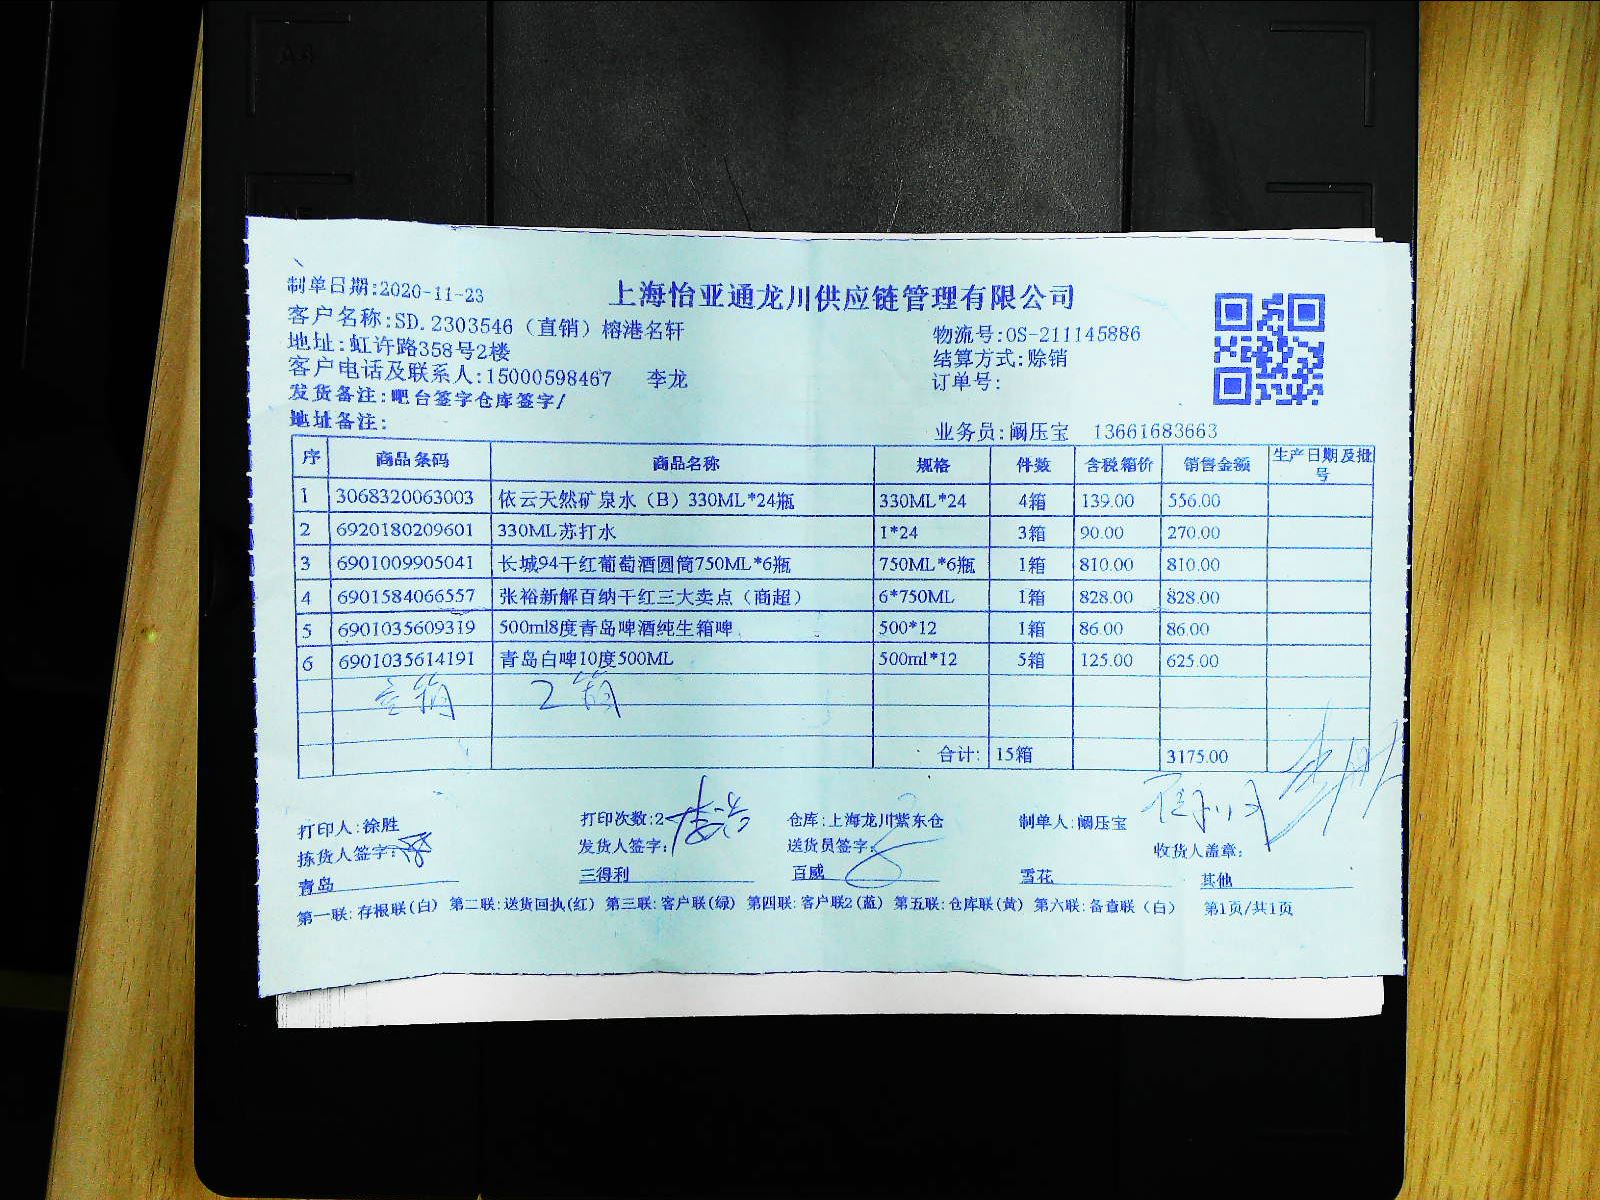 制单日期:2020-11-23
上海怡亚通龙川供应链管理有限公司
客户名称:SD.2303546（直销）榕港名轩
物流号:OS-211145886
地址:虹许路358号2楼
结算方式:赊销
客户电话及联系人:15000598467 李龙
订单号:
发货备注:吧台签字仓库签字/
地址备注:
业务员:阚压宝 13661683663
序 商品条码 商品名称 规格 件数 含税箱价 销售金额 生产日期及批号
1 3068320063003 依云天然矿泉水（B）330ML*24瓶 330ML*24 4箱 139.00 556.00
2 6920180209601 330ML苏打水 1*24 3箱 90.00 270.00
3 6901009905041 长城94干红葡萄酒圆筒750ML*6瓶 750ML*6瓶 1箱 810.00 810.00
4 6901584066557 张裕新解百纳干红三大卖点（商超） 6*750ML 1箱 828.00 828.00
5 6901035609319 500ml8度青岛啤酒纯生箱啤 500*12 1箱 86.00 86.00
6 6901035614191 青岛白啤10度500ML 500ml*12 5箱 125.00 625.00
空箱 2箱
合计: 15箱 3175.00
打印人:徐胜 打印次数:2 仓库:上海龙川紫东仓 制单人:阚压宝
拣货人签字: 发货人签字: 送货员签字: 收货人盖章:
青岛 三得利 百威 雪花 其他
第一联:存根联(白) 第二联:送货回执(红) 第三联:客户联(绿) 第四联:客户联2(蓝) 第五联:仓库联(黄) 第六联:备查联（白） 第1页/共1页